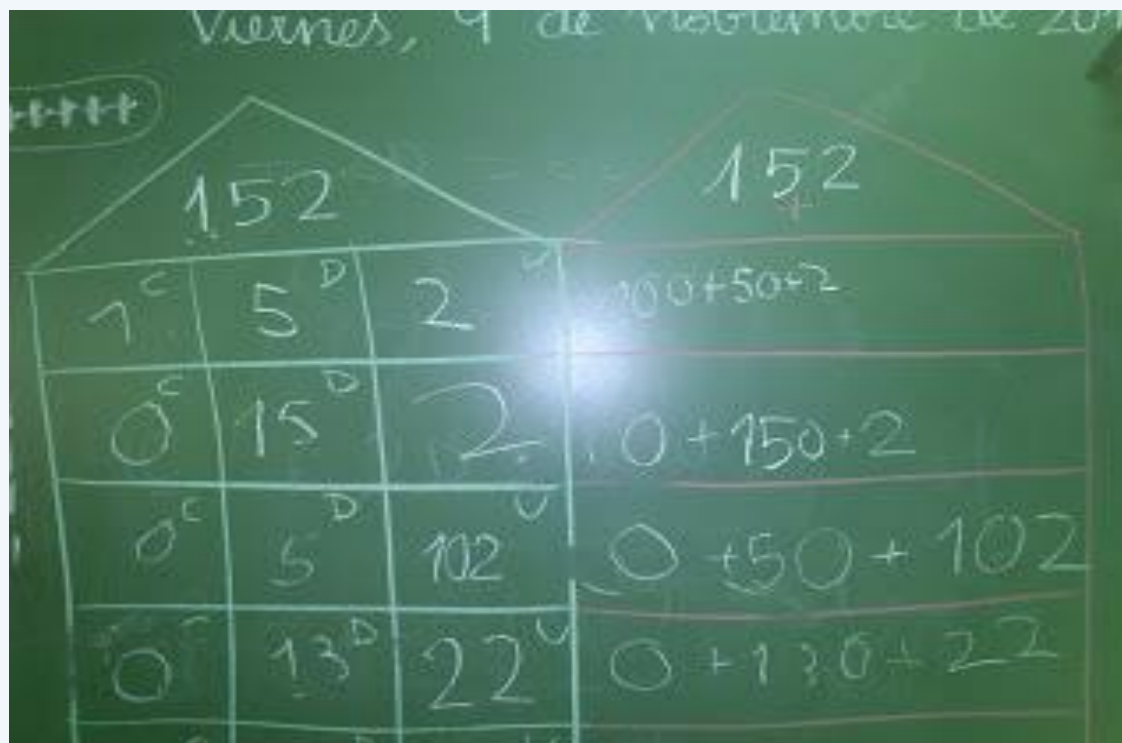 Viernes, 9 de noviembre de 201
152
152
1 C 5 D 2 U 100+50+2
0 C 15 D 2 0+150+2
0 C 5 D 102 U 0+50+102
0 C 13 D 22 U 0+130+22